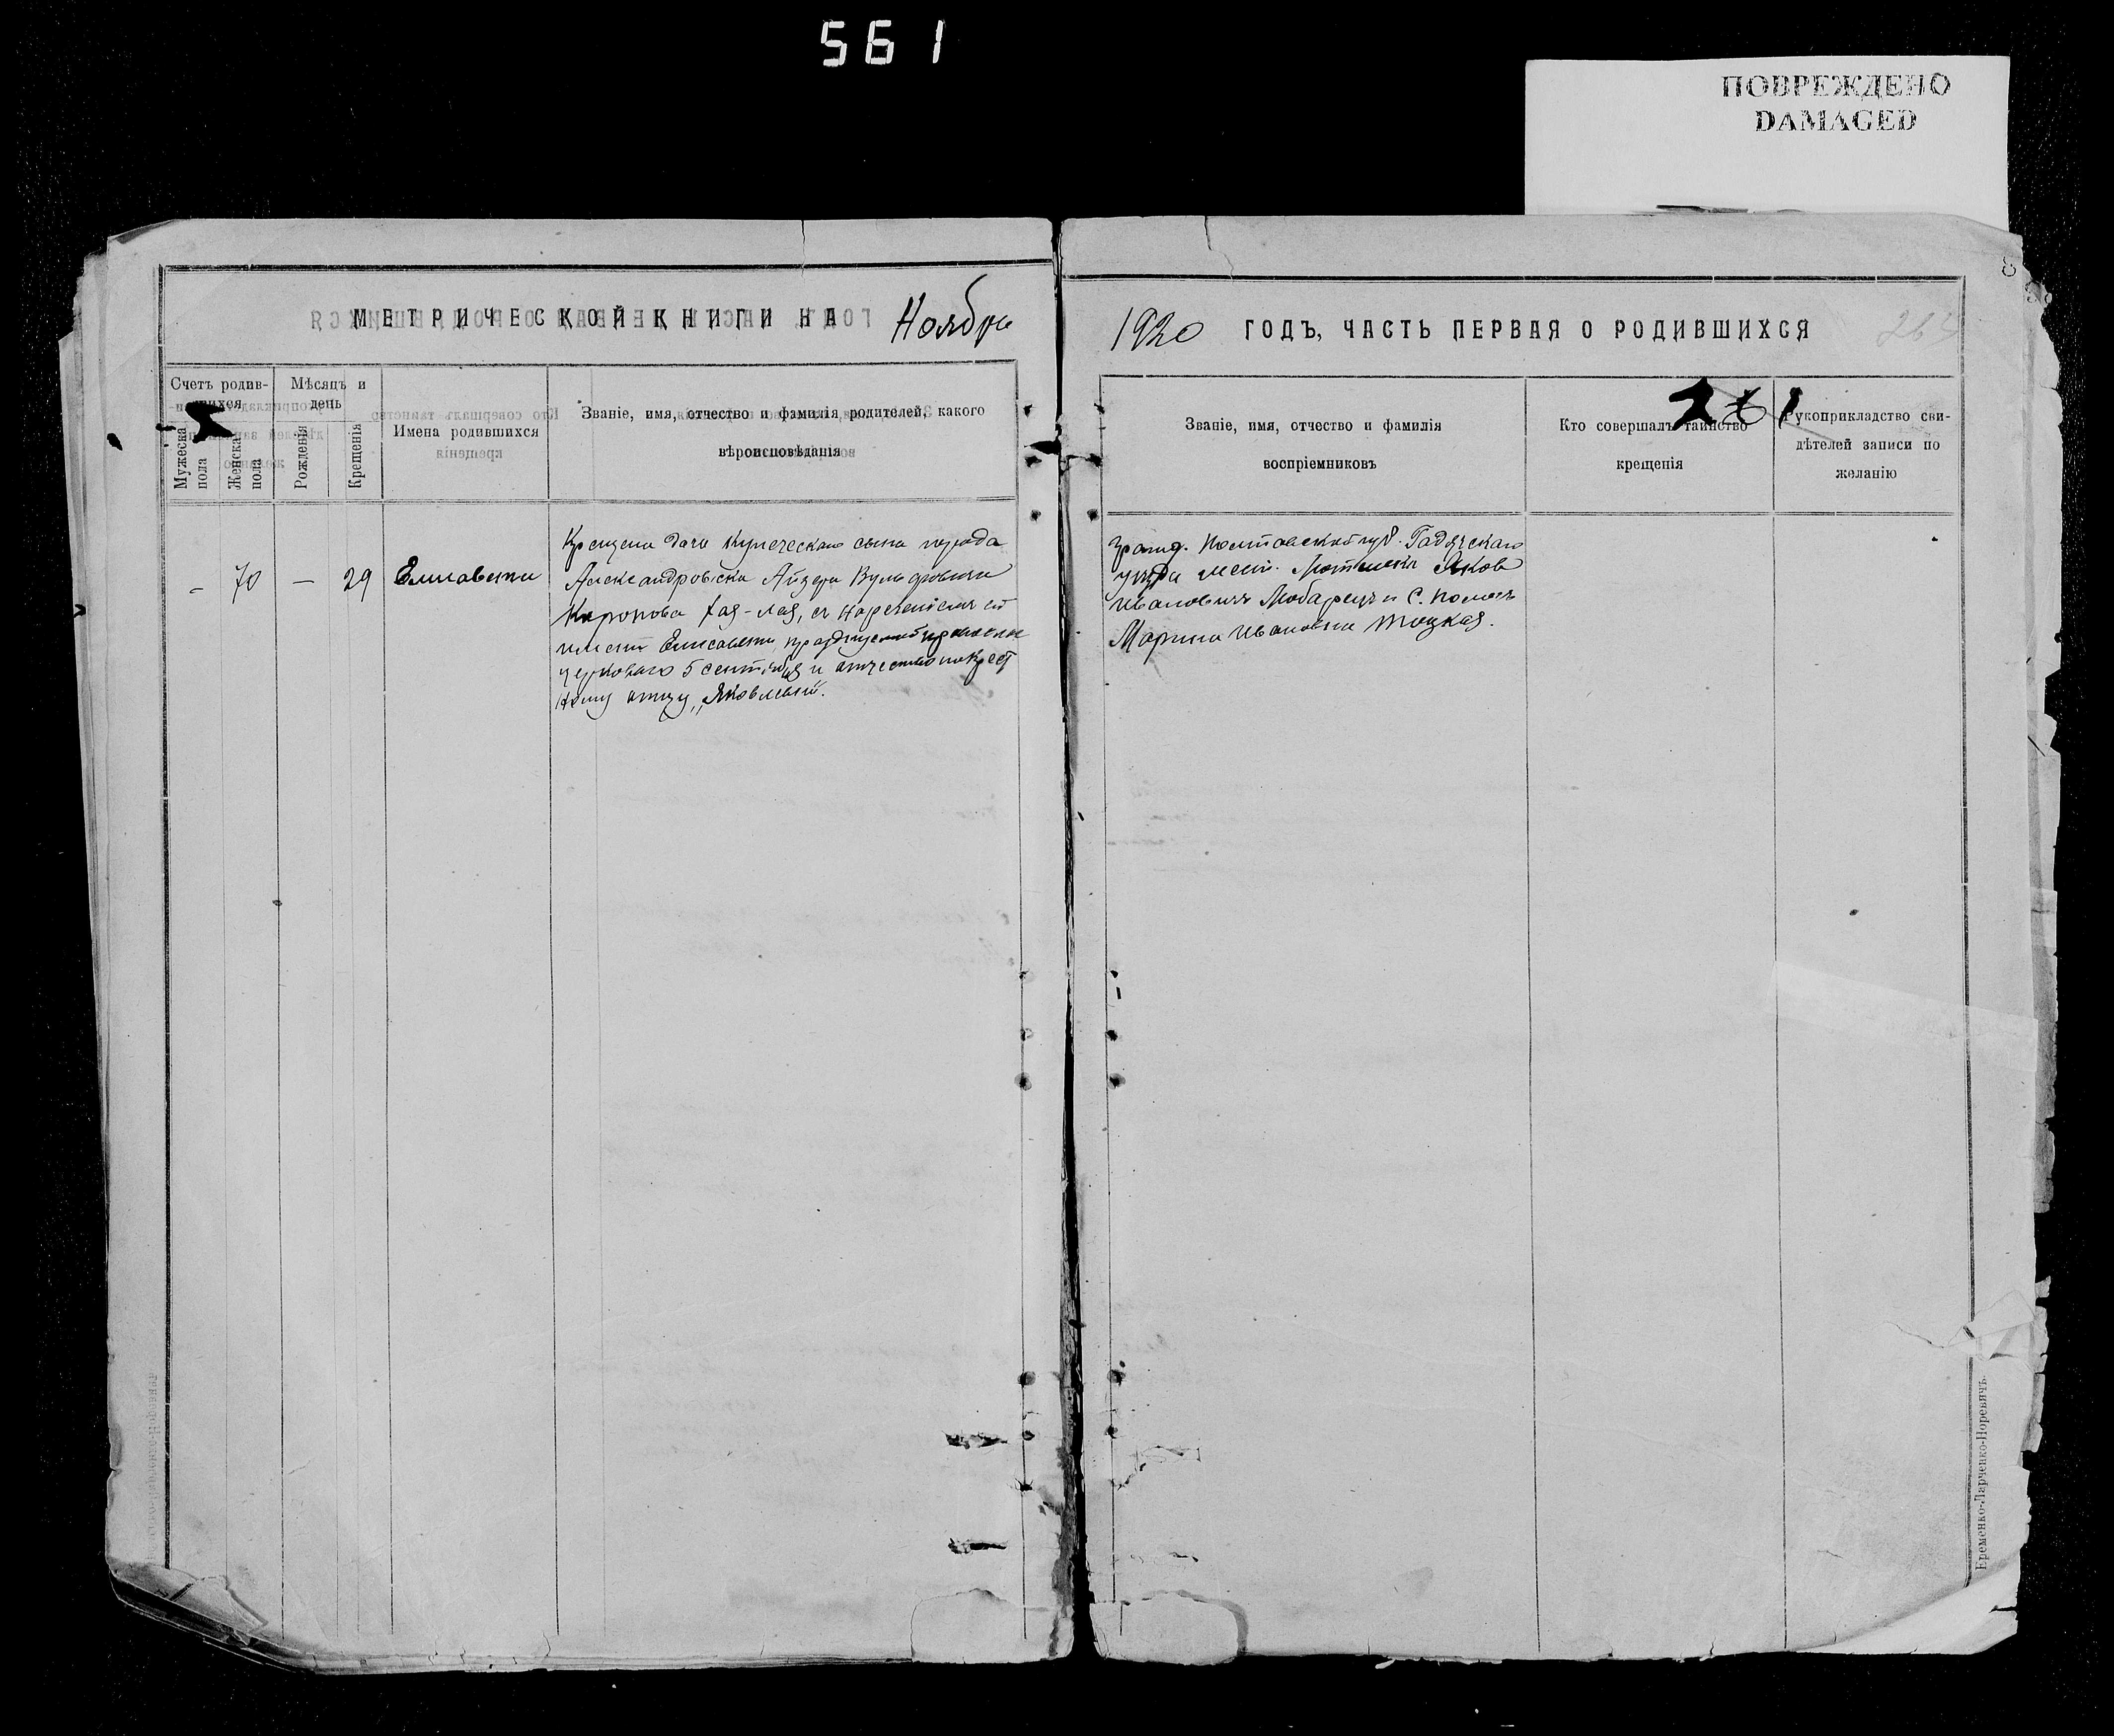 561
ПОВРЕЖДЕНО
DAMAGED
МЕТРИЧЕСКОЙ КНИГИ НА Ноябрь
1920 ГОДЪ, ЧАСТЬ ПЕРВАЯ О РОДИВШИХСЯ
Счетъ родив-
шихся
Мужеска пола
Женска пола
Мѣсяцъ и
день
Рожденія
Крещенія
Имена родившихся
Званіе, имя, отчество и фамилія родителей, какого
вѣроисповѣданія
Званіе, имя, отчество и фамилія
воспріемниковъ
Кто совершалъ таинство
крещенія
Рукоприкладство сви-
дѣтелей записи по
желанію
– 70 – 29 Елисавета
Крещена дочь купеческаго сына города
Александровска Айзера Вульфовича
Хая-Лая, съ нареченіемъ ей
имени Елисавета, празднуемой
5 сентября и отчество по крест
ному отцу „Яковлевой".
Гражд. Полтавской губ. Гадячскаго
уѣзда мест. Яковъ
Ивановичъ и С.
Марина Ивановна Троцкая.
Еременко-Ларченко-Норевичъ.